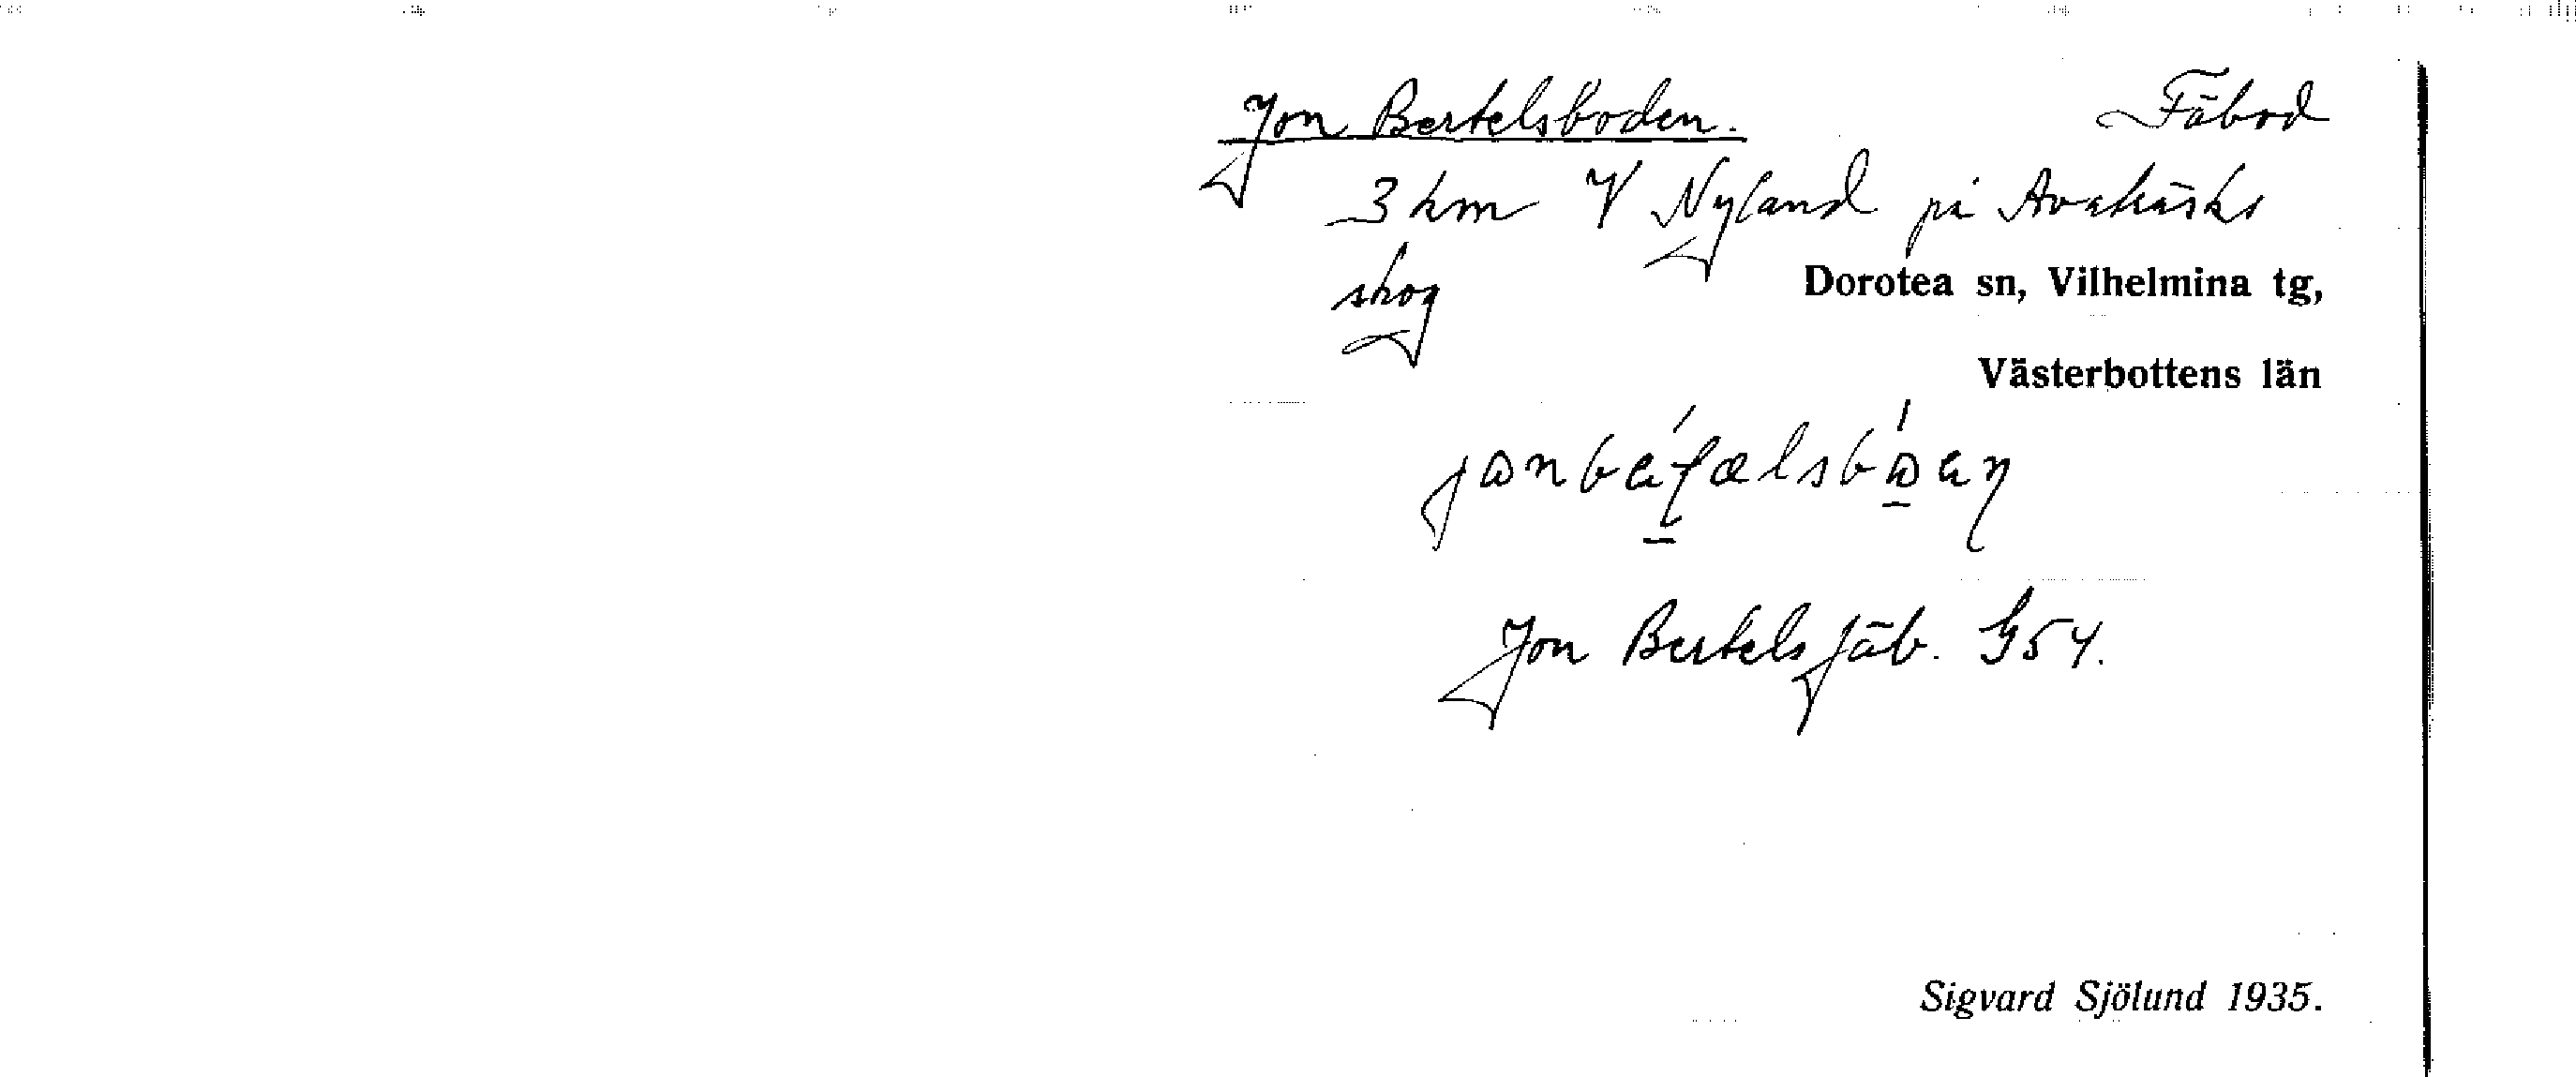 Jon Bertelsboden. Fäbod
3 km V Nyland på Avaträsks
skog
Dorotea sn, Vilhelmina tg,
Västerbottens län
Jon Bertelsfäb. G54.
Sigvard Sjölund 1935.